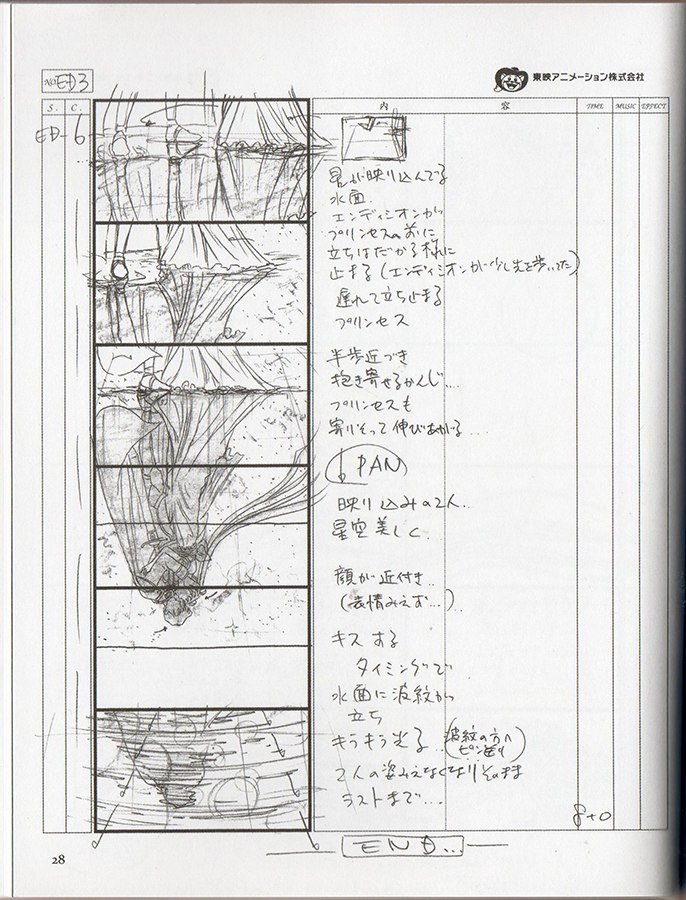 No. ED3
東映アニメーション株式会社
S. C. 内 容 TIME MUSIC EFFECT
ED-6
星が映り込んでる
水面.
エンディミオンが
プリンセスの前に
立ちはだかる様に
止まる(エンディミオンが少し先を歩いてた)
遅れて立ち止まる
プリンセス
半歩近づき
抱き寄せるかんじ…
プリンセスも
寄りそって伸びあがる…
PAN
映り込みの2人…
星空美しく.
顔が近付き..
(表情みえず…)
キスする
タイミングで
水面に波紋が
立ち
キラキラ光る..(波紋の方へピン送り)
2人の姿みえなくなりそのまま
ラストまで…
8+0
END...
28